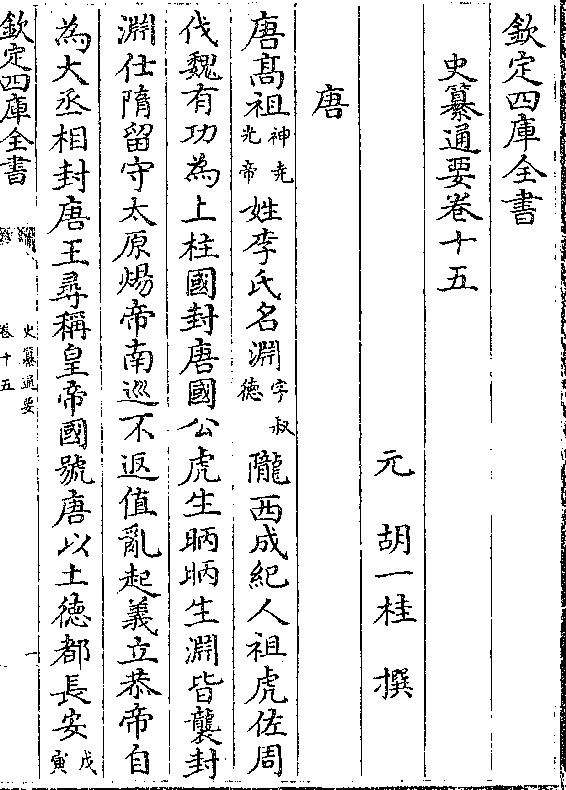 欽定四庫全書
史纂通要卷十五
元 胡一桂 撰
唐
唐髙祖神尭光帝姓李氏名淵字叔徳隴西成紀人祖虎佐周
伐魏有功為上柱國封唐國公虎生昞昞生淵皆襲封
淵仕隋留守太原煬帝南巡不返值亂起義立恭帝自
為大丞相封唐王尋稱皇帝國號唐以土徳都長安戊寅
欽定四庫全書
史纂通要
卷十五
一